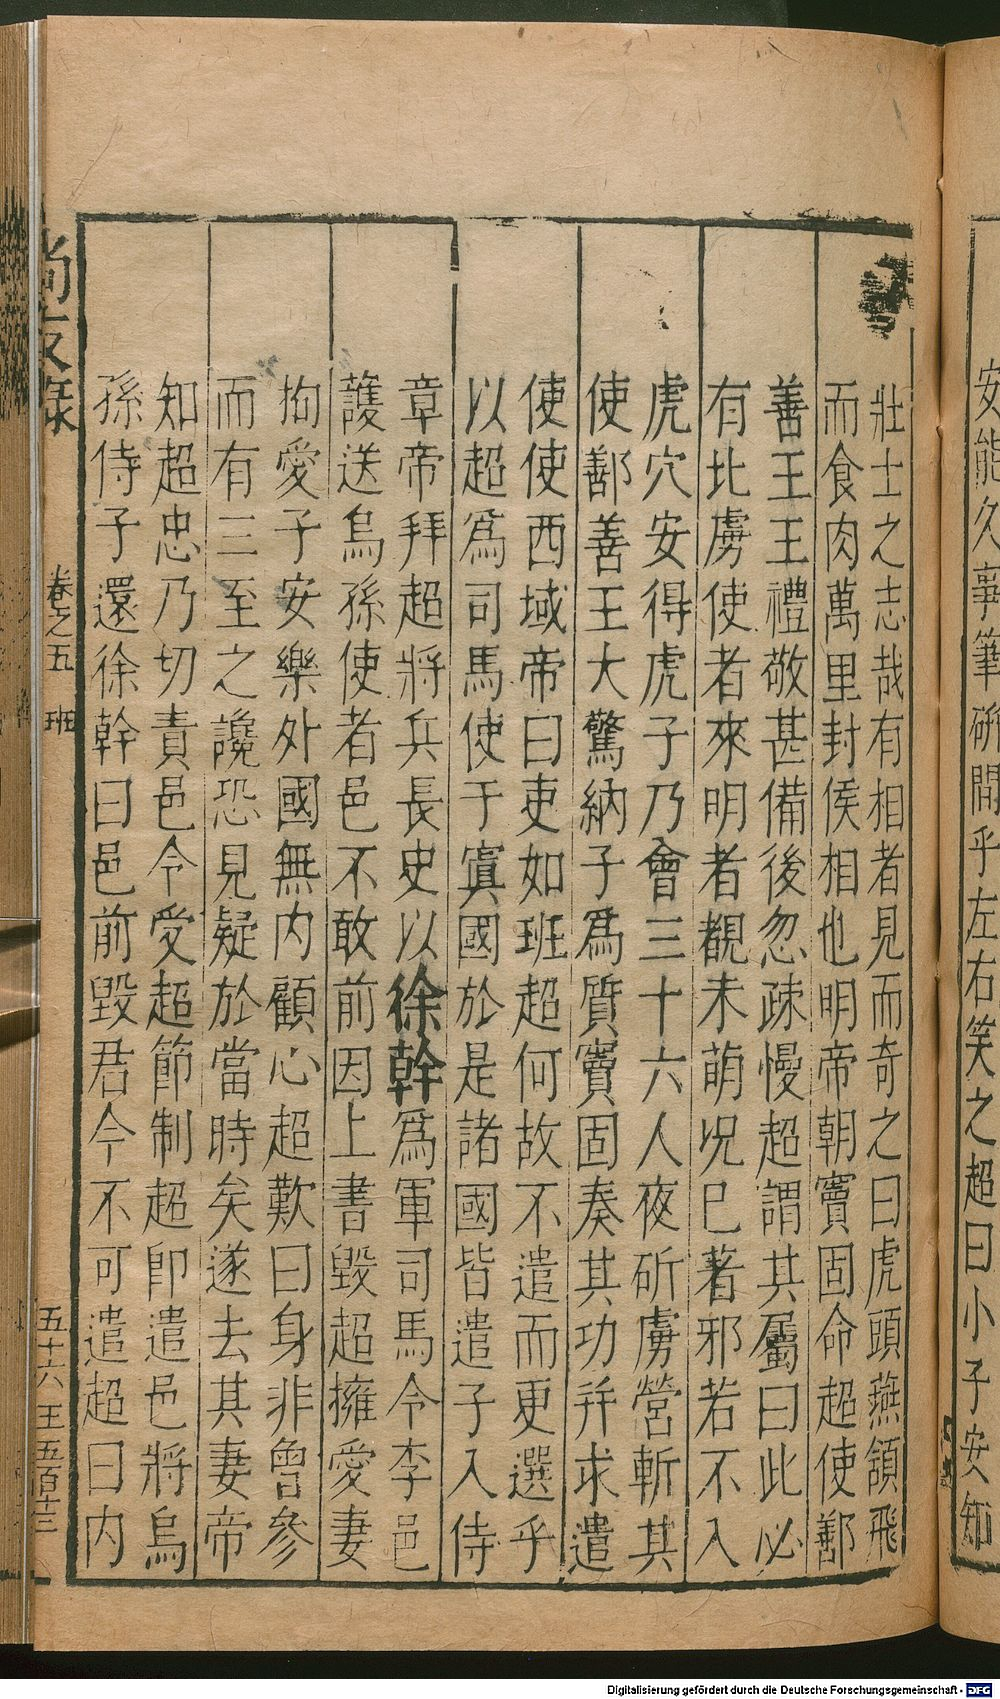 安能久事筆研間乎左右笑之超曰小子安知
壯士之志哉有相者見而奇之曰虎頭燕頷飛
而食肉萬里封侯相也明帝朝竇固命超使鄯
善王王禮敬甚備後忽疎慢超謂其屬曰此必
有北虜使者來明者覩未萌況已著邪若不入
虎穴安得虎子乃會三十六人夜斫虜營斬其
使鄯善王大驚納子爲質竇固奏其功并求遣
使使西域帝曰吏如班超何故不遣而更選乎
以超爲司馬使于窴國於是諸國皆遣子入侍
章帝拜超將兵長史以徐幹爲軍司馬令李邑
護送烏孫使者邑不敢前因上書毀超擁愛妻
抱愛子安樂外國無内顧心超歎曰身非曾參
而有三至之讒恐見疑於當時矣遂去其妻帝
知超忠乃切責邑令受超節制超卽遣邑將烏
孫侍子還徐幹曰邑前毀君今不可遣超曰内
尚友錄 卷之五 班 五十六 王五百十三
Digitalisierung gefördert durch die Deutsche Forschungsgemeinschaft - DFG